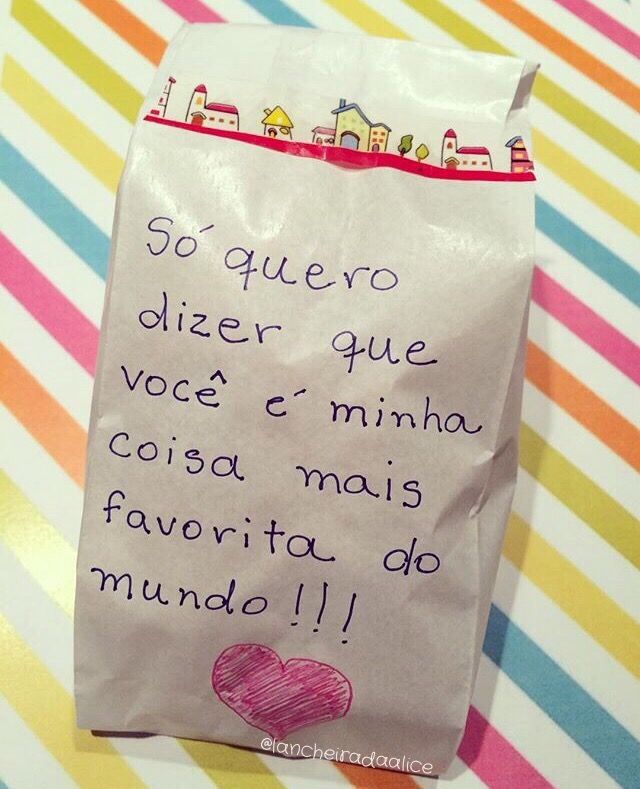 Só quero
dizer que
você é minha
coisa mais
favorita do
mundo!!!
@lancheiradaalice